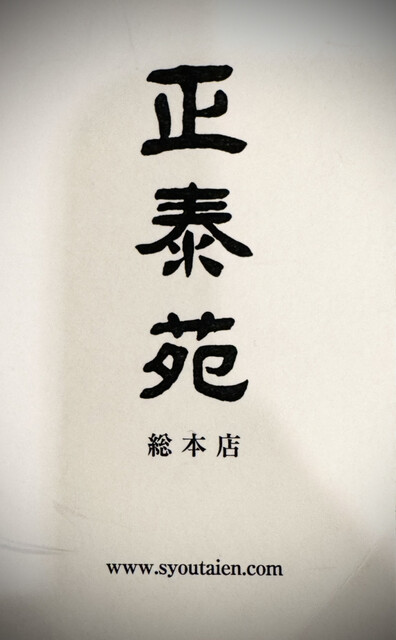 正泰苑
総本店
www.syoutaien.com